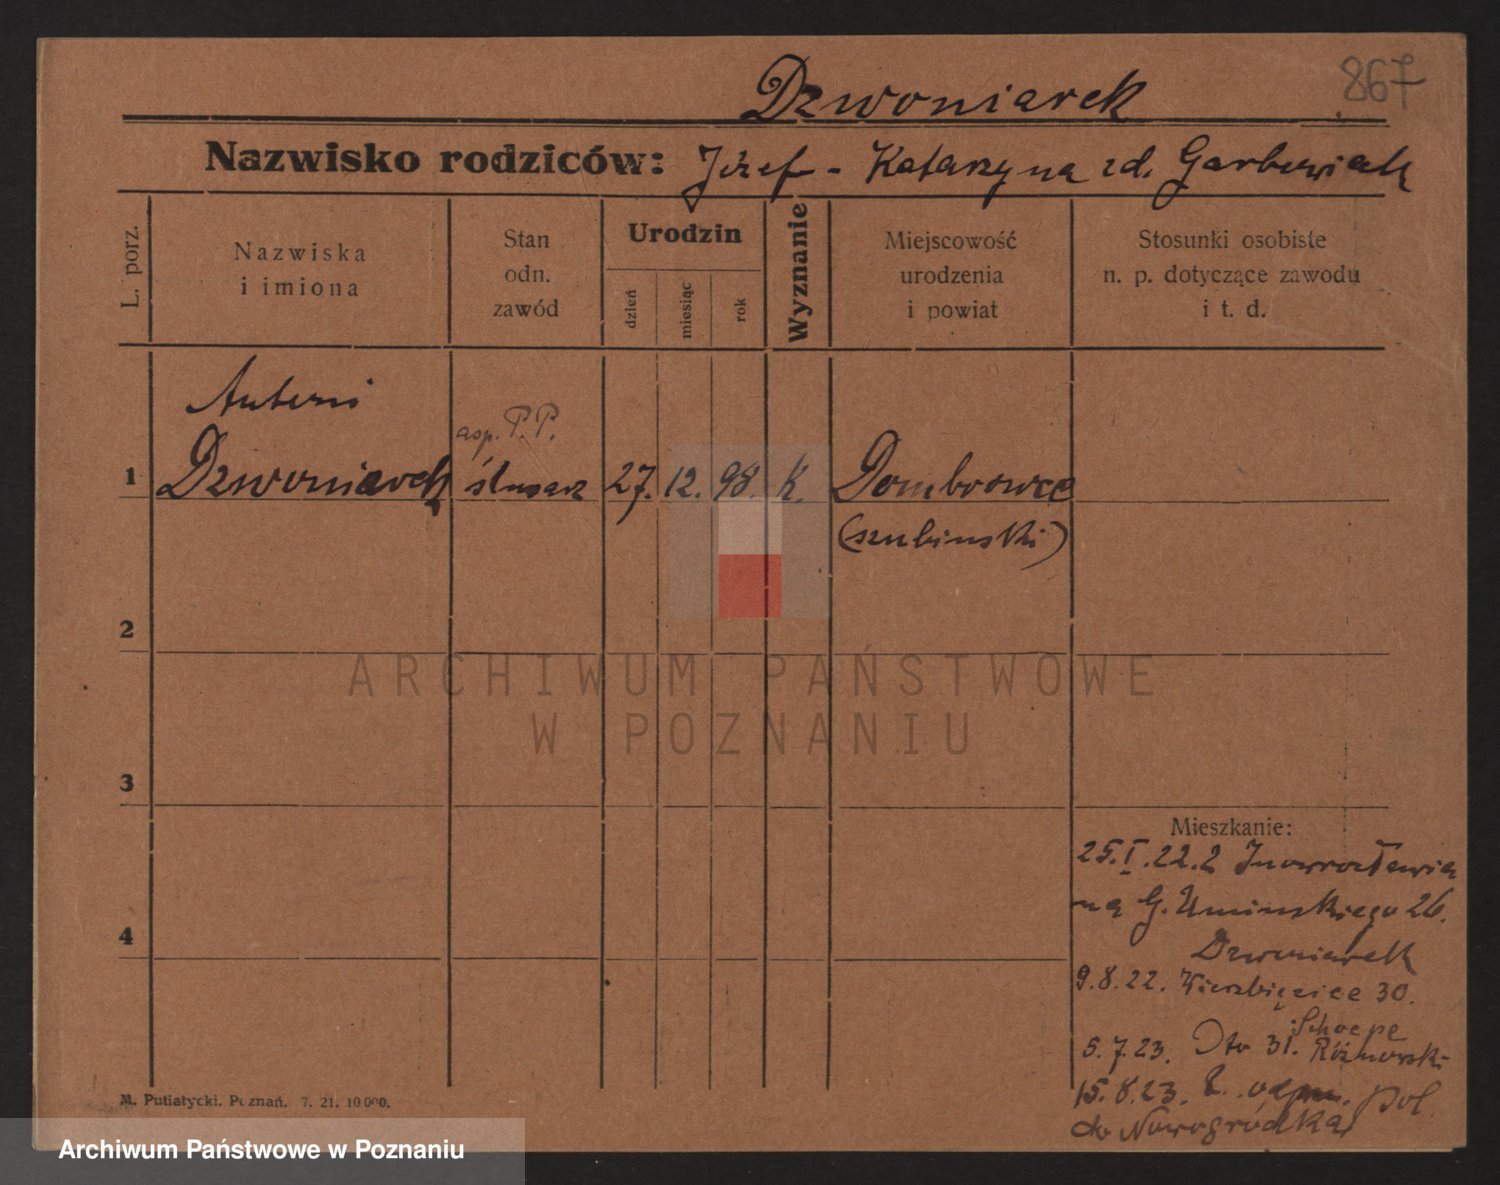 Dzwoniarek
867
Nazwisko rodziców: Józef - Katarzyna zd. Garbowiak
L. porz.
Nazwiska
i imiona
Stan
odn.
zawód
Urodzin
dzień
miesiąc
rok
Wyznanie
Miejscowość
urodzenia
i powiat
Stosunki osobiste
n. p. dotyczące zawodu
i t. d.
Antoni
asp. P.P.
1 Dzwoniarek ślusarz 27. 12. 98. K. Dombrowce
(szubinski)
2
ARCHIWUM PAŃSTWOWE
W POZNANIU
3
Mieszkanie:
25.I.22. z Inowrocławia
na G. Uminskiego 26.
4
Dzwoniarek
9.8.22. Wierzbięcice 30.
Schoepe
5.7.23. Dto 31. Różnowski
15.8.23. odpr. Pol
do Nowogródka
M. Putiatycki. Poznań. 7. 21. 10000.
Archiwum Państwowe w Poznaniu